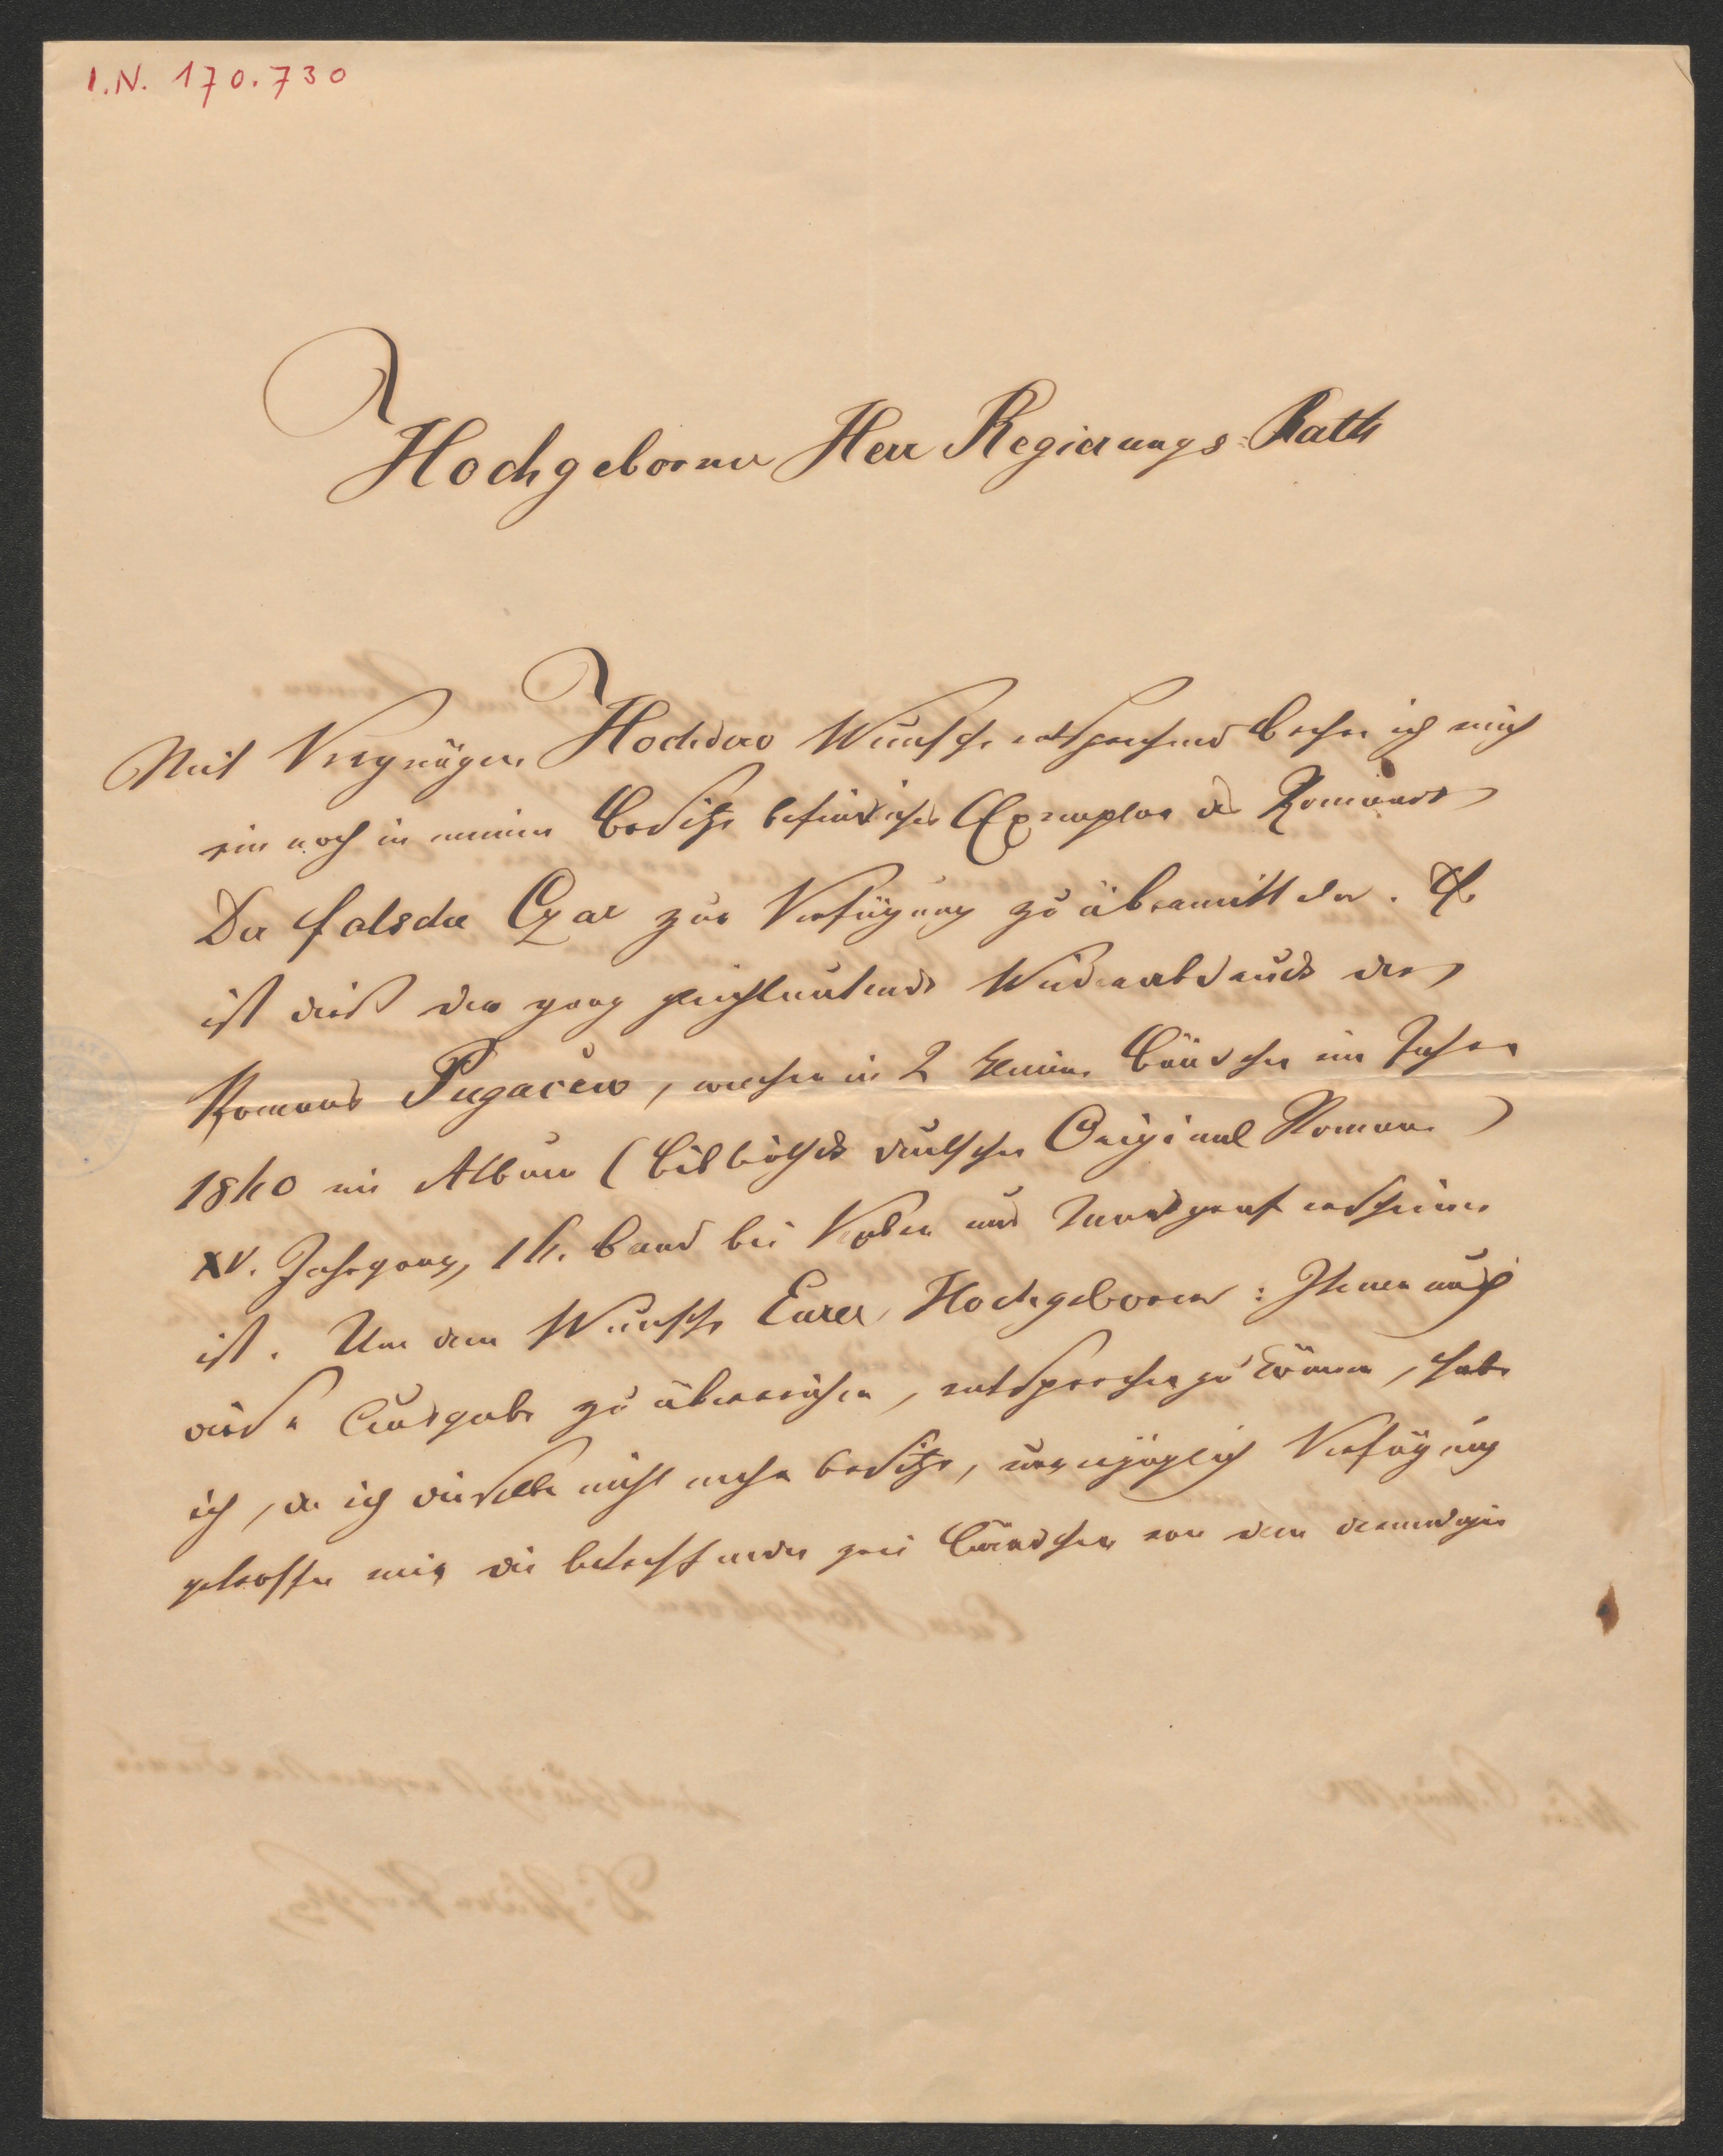 I.N. 170.730
Hochgeborner Herr Regierungs-Rath
Mit Vergnügen Hochdero Wunsche entsprechend beehre ich mich
ein noch in meinem Besitze befindliches Exemplar des Romans
Der falsche Czar zur Verfügung zu übermitteln. Es
ist dieß der ganz gleichlautende Wiederabdruck des
Romans Pugacew, welcher in 2 kleinen Bändchen im Jahre
1860 im Album (Bibliothek deutscher Original Romane)
XV. Jahrgang, 16. Band bei Kober und Markgraf erschienen
ist. Um dem Wunsche Euer Hochgeboren: Ihnen auch
diese Ausgabe zu überreichen, entsprechen zu können, habe
ich, da ich dieselbe nicht mehr besitze, unverzüglich Verfügung
getroffen mir die betreffenden zwei Bändchen von dem dermaligen